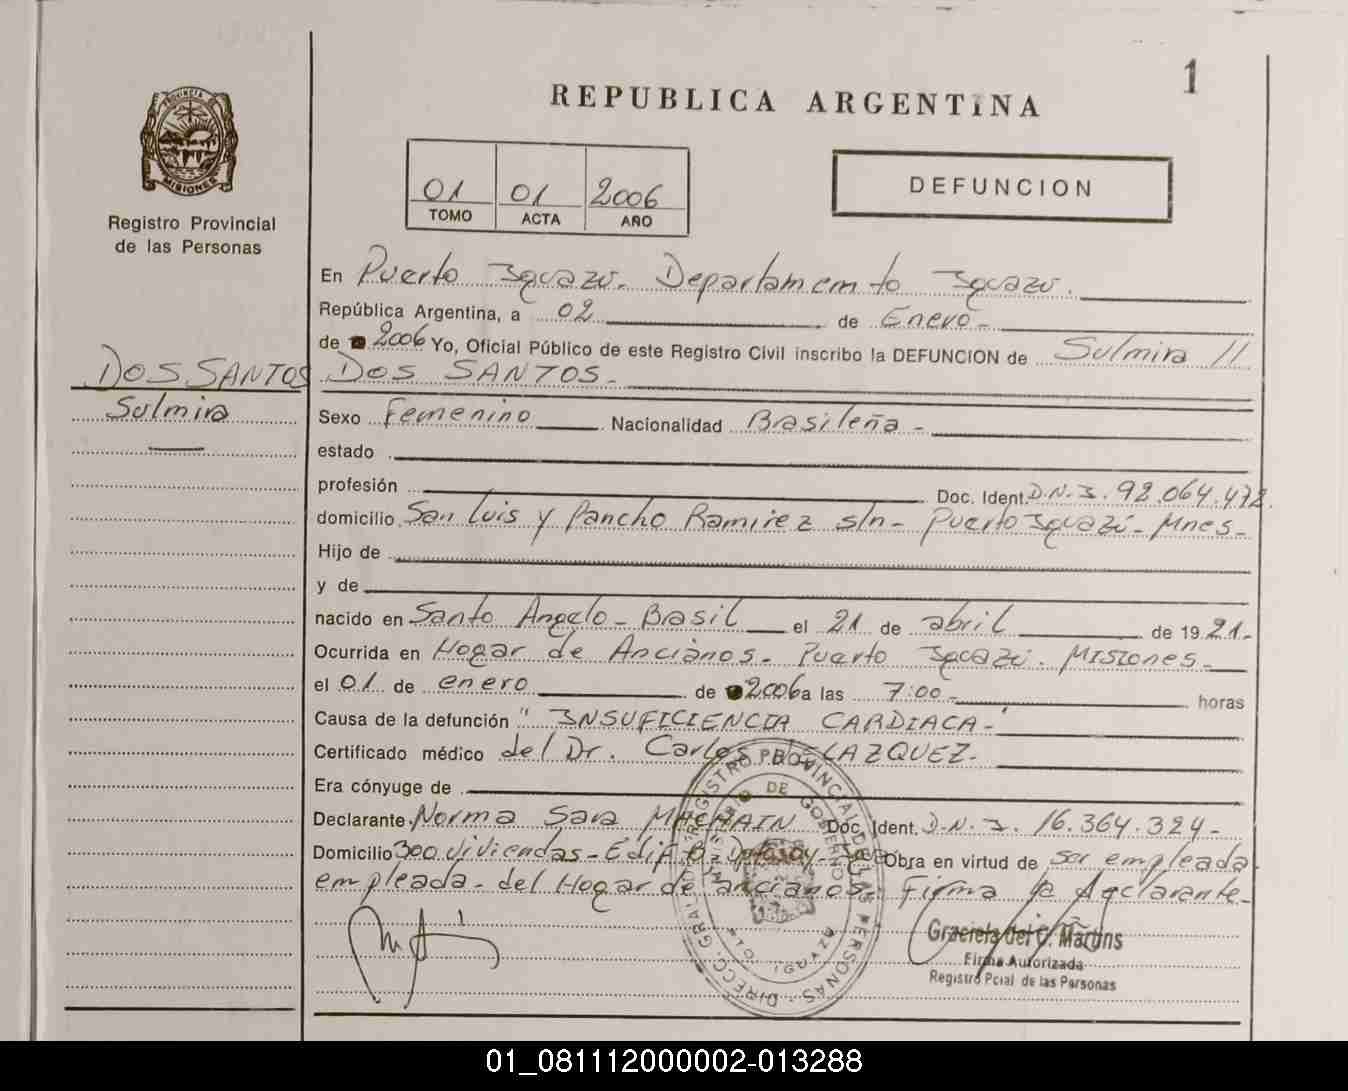 1
REPUBLICA ARGENTINA
PROVINCIA DE
MISIONES
Registro Provincial
de las Personas
01 01 2006
TOMO ACTA AÑO
DEFUNCION
En Puerto Iguazú. Departamento Iguazú.
República Argentina, a 02 de Enero-
de 2006 Yo, Oficial Público de este Registro Civil inscribo la DEFUNCION de Sulmira //
DOS SANTOS DOS SANTOS-
Sulmira
Sexo Femenino Nacionalidad Brasileña-
estado
profesión Doc. Ident. D.N.I. 92.064.472
domicilio San Luis y Pancho Ramirez s/n- Puerto Iguazú- Mnes-
Hijo de
y de
nacido en Santo Angelo- Brasil el 21 de abril de 1921-
Ocurrida en Hogar de Ancianos- Puerto Iguazú. MISIONES-
el 01 de enero de 2006 a las 7:00- horas
Causa de la defunción "INSUFICIENCIA CARDIACA-"
Certificado médico del Dr. Carlos VELAZQUEZ-
Era cónyuge de
Declarante Norma Sara Doc. Ident. D.N.I. 16.364.324-
Domicilio 300 viviendas- Edif. B- Obra en virtud de ser empleada
empleada- del Hogar de ancianos- Firma la declarante-
DIRECC. GRAL. DE REGISTRO PROVINCIAL DE LAS PERSONAS
MINISTERIO DE GOBIERNO
PTO. IGUAZU
Graciela del C. Martins
Firma Autorizada
Registro Pcial de las Personas
01_081112000002-013288